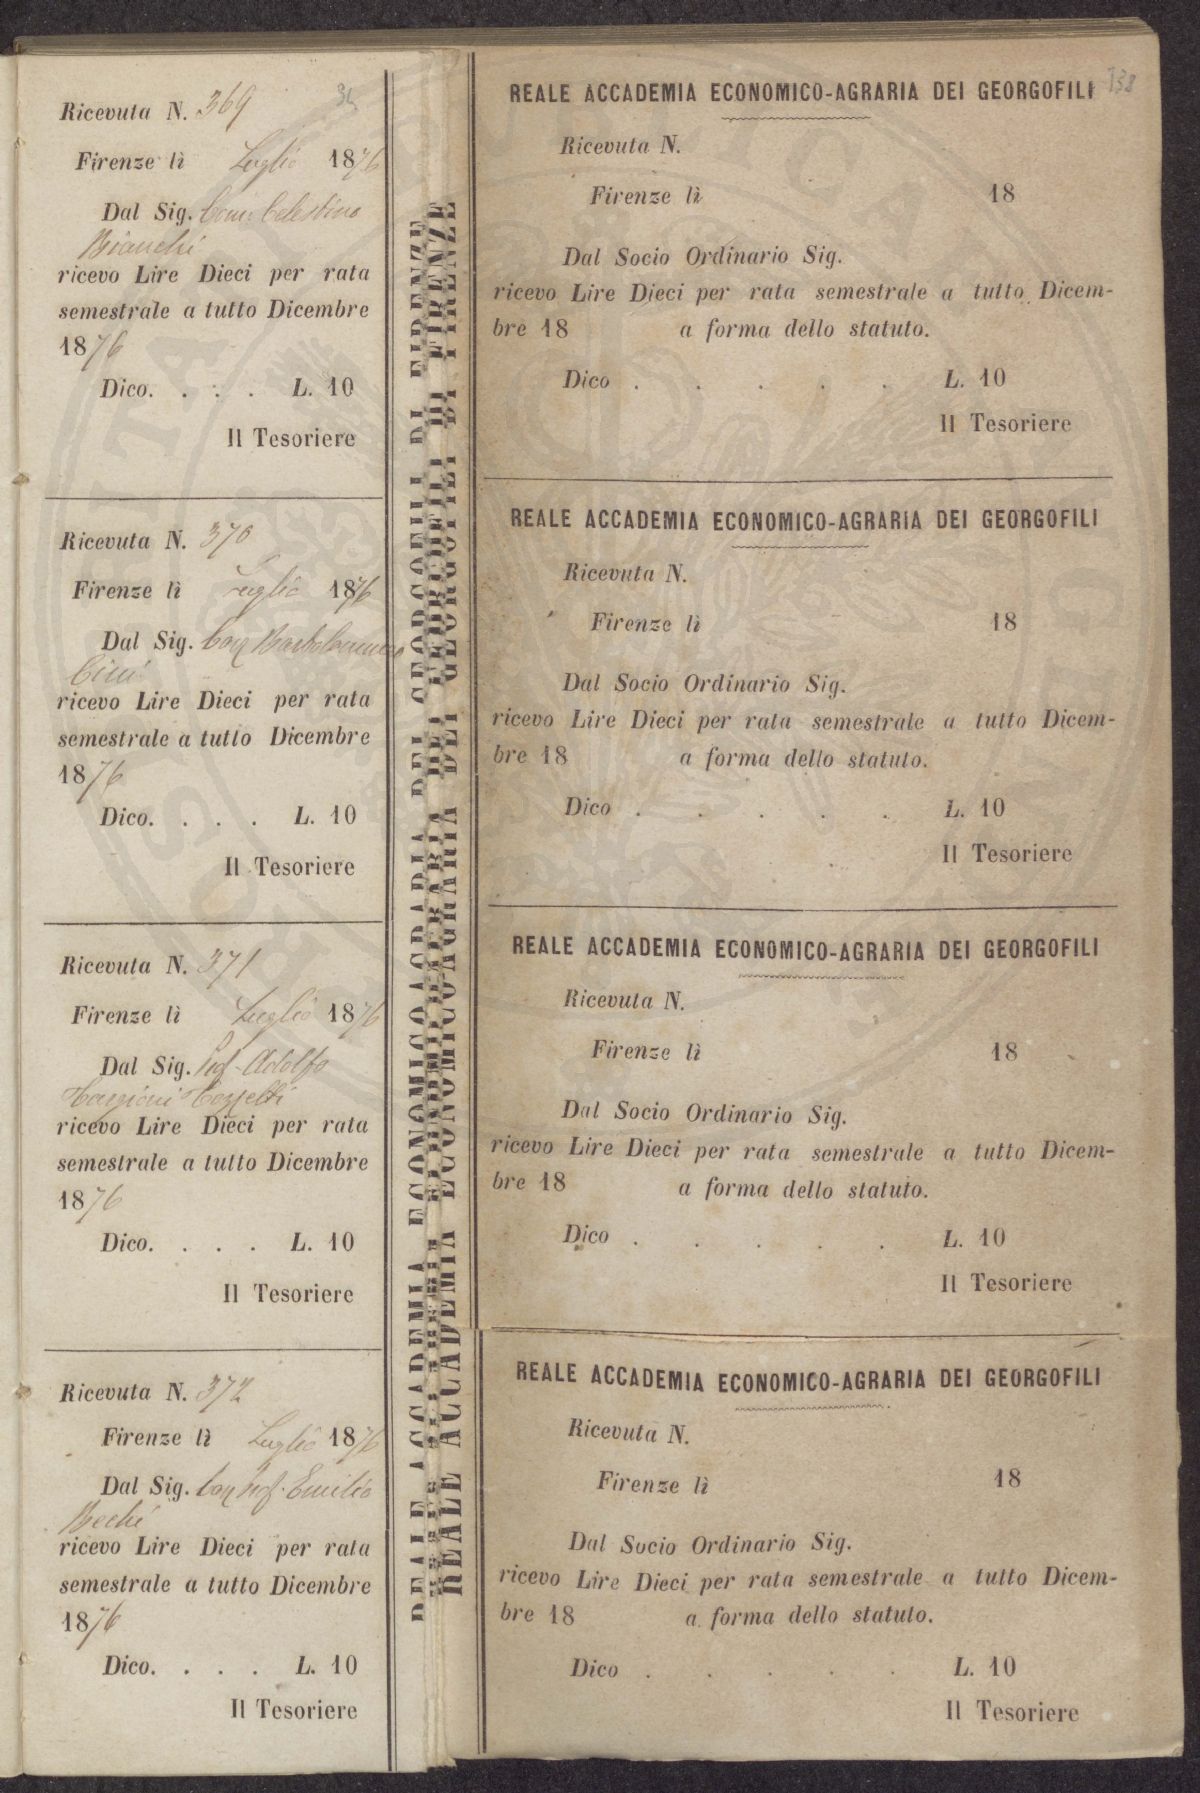 Ricevuta N. 369
Firenze lì Luglio 1876
Dal Sig. Com: Celestino
Bianchi
ricevo Lire Dieci per rata
semestrale a tutto Dicembre
1876
Dico. . . . L. 10
Il Tesoriere
Ricevuta N. 370
Firenze lì Luglio 1876
Dal Sig. Bartolommeo
Cini
ricevo Lire Dieci per rata
semestrale a tutto Dicembre
1876
Dico. . . . L. 10
Il Tesoriere
Ricevuta N. 371
Firenze lì Luglio 1876
Dal Sig. Prof. Adolfo
Targioni Tozzetti
ricevo Lire Dieci per rata
semestrale a tutto Dicembre
1876
Dico. . . . L. 10
Il Tesoriere
Ricevuta N. 372
Firenze lì Luglio 1876
Dal Sig. Prof. Emilio
Bechi
ricevo Lire Dieci per rata
semestrale a tutto Dicembre
1876
Dico. . . . L. 10
Il Tesoriere
REALE ACCADEMIA ECONOMICO-AGRARIA DEI GEORGOFILI DI FIRENZE
REALE ACCADEMIA ECONOMICO-AGRARIA DEI GEORGOFILI DI FIRENZE
138
REALE ACCADEMIA ECONOMICO-AGRARIA DEI GEORGOFILI
Ricevuta N.
Firenze lì 18
Dal Socio Ordinario Sig.
ricevo Lire Dieci per rata semestrale a tutto Dicem-
bre 18 a forma dello statuto.
Dico . . . . . L. 10
Il Tesoriere
REALE ACCADEMIA ECONOMICO-AGRARIA DEI GEORGOFILI
Ricevuta N.
Firenze lì 18
Dal Socio Ordinario Sig.
ricevo Lire Dieci per rata semestrale a tutto Dicem-
bre 18 a forma dello statuto.
Dico . . . . . L. 10
Il Tesoriere
REALE ACCADEMIA ECONOMICO-AGRARIA DEI GEORGOFILI
Ricevuta N.
Firenze lì 18
Dal Socio Ordinario Sig.
ricevo Lire Dieci per rata semestrale a tutto Dicem-
bre 18 a forma dello statuto.
Dico . . . . . L. 10
Il Tesoriere
REALE ACCADEMIA ECONOMICO-AGRARIA DEI GEORGOFILI
Ricevuta N.
Firenze lì 18
Dal Socio Ordinario Sig.
ricevo Lire Dieci per rata semestrale a tutto Dicem-
bre 18 a forma dello statuto.
Dico . . . . . L. 10
Il Tesoriere